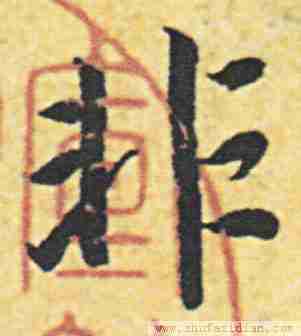 非
www.shufazidian.com